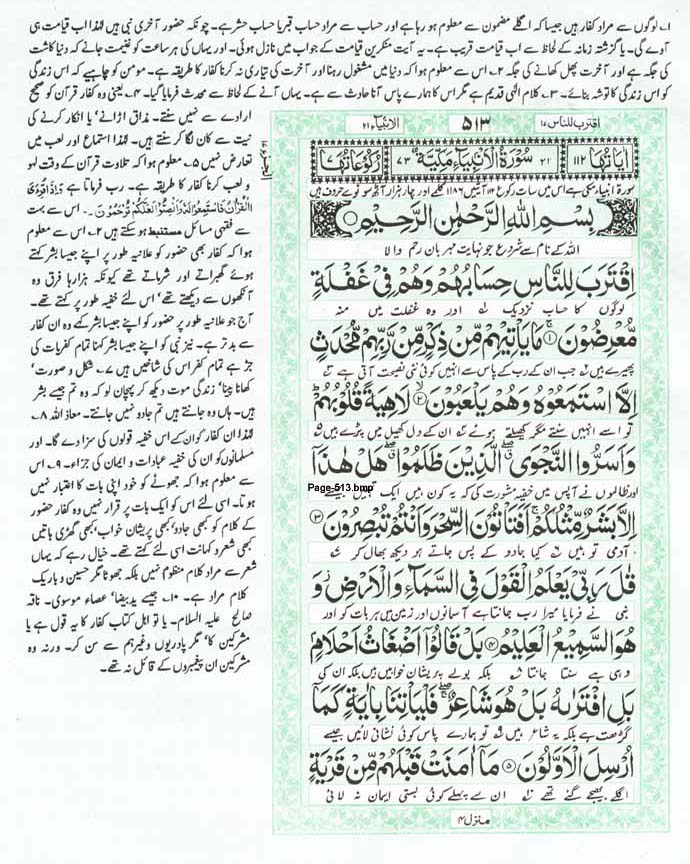 ۱۔ لوگوں سے مراد کفار ہیں جیسا کہ اگلے مضمون سے معلوم ہو رہا ہے اور حساب سے مراد حساب قبر یا حساب حشر ہے۔ چونکہ حضور آخری نبی ہیں لہٰذا اب قیامت ہی
آوے گی۔ یا گزشتہ زمانہ کے لحاظ سے اب قیامت قریب ہے۔ یہ آیت منکرین قیامت کے جواب میں نازل ہوئی۔ اور یہاں کی ہر ساعت کو غنیمت جانے کہ دنیا کاشت
کی جگہ ہے اور آخرت پھل کھانے کی جگہ ۲۔ اس سے معلوم ہوا کہ دنیا میں مشغول رہنا اور آخرت کی تیاری نہ کرنا کفار کا طریقہ ہے۔ مومن کو چاہیے کہ اس زندگی
کو اس زندگی کا توشہ بنائے۔ ۳۔ کلام الٰہی قدیم ہے مگر اس کا ہمارے پاس آنا حادث سے ہے۔ یہاں آنے کے لحاظ سے محدث فرمایا گیا۔ ۴۔ یعنی وہ کفار قرآن کو صحیح
ارادے سے نہیں سنتے۔ مذاق اڑانے، یا انکار کرنے کی
نیت سے کان لگا کر سنتے ہیں۔ لہٰذا استماع اور لعب میں
تعارض نہیں ۵۔ معلوم ہوا کہ تلاوت قرآن کے وقت لہو
و لعب کرنا کفار کا طریقہ ہے۔ رب فرماتا ہے وَاِذَا قُرِئَ
الْقُرْاٰنُ فَاسْتَمِعُوْا لَهٗ وَاَنْصِتُوْا لَعَلَّكُمْ تُرْحَمُوْنَ۔ اس سے بہت
سے فقہی مسائل مستنبط ہو سکتے ہیں ۶۔ اس سے معلوم
ہوا کہ کفار بھی حضور کو علانیہ طور پر اپنے جیسا بشر کہتے
ہوئے گھبراتے اور شرماتے تھے کیونکہ ہزارہا فرق وہ
آنکھوں سے دیکھتے تھے، اس لئے خفیہ طور پر کہتے تھے۔
آج جو علانیہ طور پر حضور کو اپنے جیسا بشر کہے وہ ان کفار
سے بدتر ہے۔ نیز نبی کو اپنے جیسا بشر کہنا تمام کفریات کی
جڑ ہے تمام کفر اس کی شاخیں ہیں ۷۔ شکل و صورت،
کھانا پینا، زندگی موت دیکھ کر پہچان لو کہ وہ تم جیسے بشر
ہیں۔ ہاں وہ جانتے ہیں تم جادو نہیں جانتے۔ معاذ اللہ ۸۔
لہٰذا ان کفار کو ان کے اس خفیہ قولوں کی سزا دے گا۔ اور
مسلمانوں کو ان کی خفیہ عبادات و ایمان کی جزاء۔ ۹۔ اس
سے معلوم ہوا کہ جھوٹے کو خود اپنی بات کا اعتبار نہیں
ہوتا۔ اسی لئے اس کو ایک بات پر قرار نہیں وہ کفار حضور
کے کلام کو کبھی جادو، کبھی پریشان خواب، کبھی گھڑی باتیں
کبھی شعر و کہانت اسی لئے کہتے تھے۔ خیال رہے کہ یہاں
شعر سے مراد کلام منظوم نہیں بلکہ جھوٹا مگر حسین و باریک
کلام مراد ہے۔ ۱۰۔ جیسے ید بیضا، عصاء موسوی۔ ناقہ
صالح علیہ السلام۔ یا تو اہل کتاب کفار کا یہ قول ہے یا
مشرکین کا، مگر پادریوں وغیرہم سے سن کر۔ ورنہ وہ
مشرکین ان پیغمبروں کے قائل نہ تھے۔
اقترب للناس ۱۷ ۵۱۳ الانبیاء ۲۱
اٰيَاتُهَا ۱۱۲ ۲۱ سُوْرَةُ الْاَنْبِيَآءِ مَكِّيَّةٌ ۷۳ رُكُوْعَاتُهَا ۷
سورۃ انبیاء مکی ہے اس میں سات رکوع ۱۱۲ آیتیں ۱۱۸۶ کلمے اور چار ہزار آٹھ سو نوے حروف ہیں
بِسْمِ اللّٰهِ الرَّحْمٰنِ الرَّحِيْمِ
اللہ کے نام سے شروع جو نہایت مہربان رحم والا
اِقْتَرَبَ لِلنَّاسِ حِسَابُهُمْ وَهُمْ فِيْ غَفْلَةٍ
لوگوں کا حساب نزدیک ۱ اور وہ غفلت میں منہ
مُّعْرِضُوْنَ ۱ مَا يَاْتِيْهِمْ مِّنْ ذِكْرٍ مِّنْ رَّبِّهِمْ مُّحْدَثٍ
پھیرے ہیں ۲ جب ان کے رب کے پاس سے انہیں کوئی نئی نصیحت آتی ہے ۳
اِلَّا اسْتَمَعُوْهُ وَهُمْ يَلْعَبُوْنَ ۲ لَاهِيَةً قُلُوْبُهُمْ
تو اسے نہیں سنتے مگر کھیلتے ہوئے ۴ ان کے دل کھیل میں پڑے ہیں ۵
وَاَسَرُّوا النَّجْوَى الَّذِيْنَ ظَلَمُوْا هَلْ هٰذَآ
اور ظالموں نے آپس میں خفیہ مشورت کی کہ یہ کون ہیں ایک
Page-513.bmp
اِلَّا بَشَرٌ مِّثْلُكُمْ اَفَتَاْتُوْنَ السِّحْرَ وَاَنْتُمْ تُبْصِرُوْنَ ۳
آدمی تو ہیں ۶ کیا جادو کے پاس جاتے ہو دیکھ بھال کر ۷
قٰلَ رَبِّيْ يَعْلَمُ الْقَوْلَ فِي السَّمَآءِ وَالْاَرْضِ وَ
نبی نے فرمایا میرا رب جانتا ہے آسمانوں اور زمین میں ہر بات کو اور
هُوَ السَّمِيْعُ الْعَلِيْمُ ۴ بَلْ قَالُوْٓا اَضْغَاثُ اَحْلَامٍ
وہی ہے سنتا جانتا ۸ بلکہ بولے پریشان خوابیں ہیں بلکہ ان کی
بَلِ افْتَرٰىهُ بَلْ هُوَ شَاعِرٌ فَلْيَاْتِنَا بِاٰيَةٍ كَمَآ
گڑھت ہے بلکہ یہ شاعر ہیں ۹ تو ہمارے پاس کوئی نشانی لائیں جیسے
اُرْسِلَ الْاَوَّلُوْنَ ۵ مَآ اٰمَنَتْ قَبْلَهُمْ مِّنْ قَرْيَةٍ
اگلے بھیجے گئے تھے ۱۰ ان سے پہلے کوئی بستی ایمان نہ لائی
منزل ۴